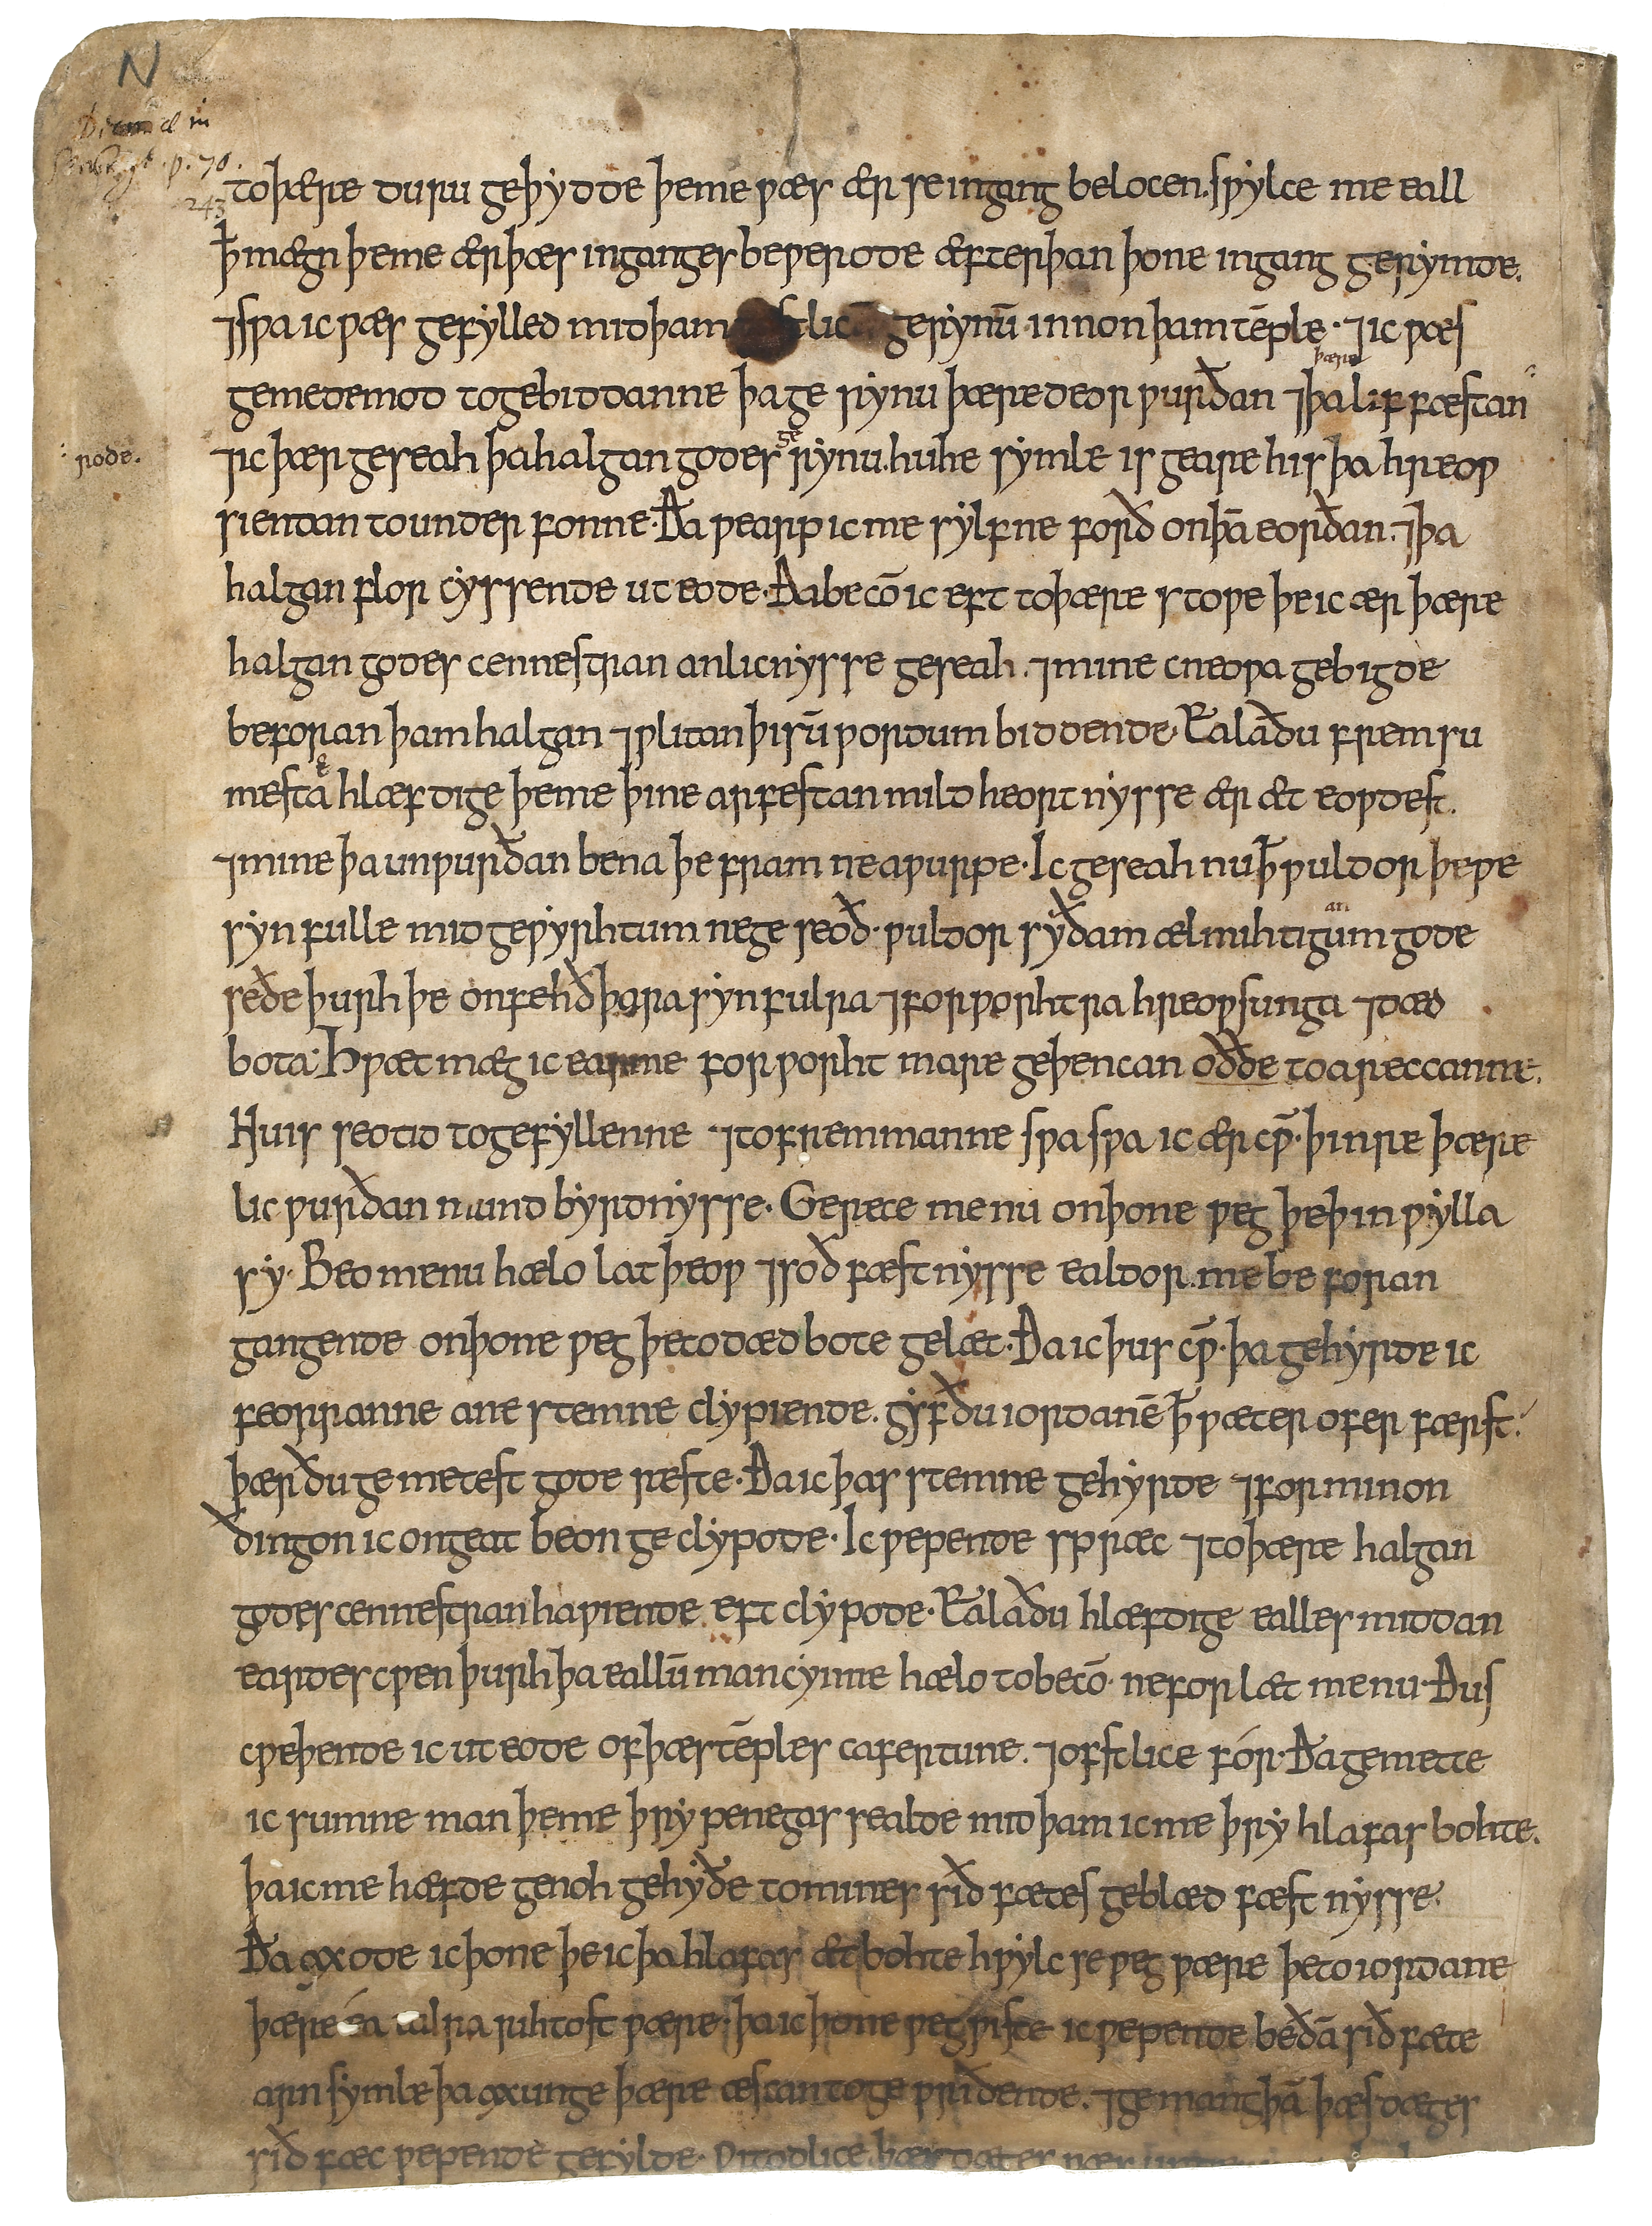 N
p. 70.
243
toþære duru geþydde þeme wæs ær se ingang belocen. swylce me eall
ꝥ mægn þeme ær þæs inganges bewerode æfter þan þone ingang gerymde.
⁊ swa ic wæs gefylled mid þam gerynū innon þam tēple · ⁊ ic wæs
gemedemod to gebiddanne þa gerynu þære deorwurðan ⁊ þa liffæstan
þære
rode.
⁊ ic þær geseah þa halgan godes gerynu. hu he symle is geare his þa hreow
siendan to underfonne · Ða wearp ic me sylfne forð on þā eorðan. ⁊ þa
halgan flor cyssende ut eode · Ða becō ic eft to þære stowe þe ic ær þære
halgan godes cennestran anlicnysse geseah. ⁊ mine cneowa gebigde
beforan þam halgan ⁊wlitan þisū wordum biddende · Eala ðu fremsu
mestā hlæfdige þeme þine arfestan mildheortnysse ær æt eowdest.
⁊ mine þa unwurðan bena þe fram ne awurpe · Ic geseah nu ꝥ wuldor þe we
synfulle mid gewyrhtum ne geseoð · wuldor sy ðam ælmihtigum gode
an
se ðe þurh þe onfehð þara synfulra ⁊ forworhtra hreowsunga ⁊ dæd
bota · Hwæt mæg ic earme forworht mare geþencan oððe to areccanne.
Hu is seo tid to gefyllenne ⁊ to fremmanne swa swa ic ær cw̄ · þinre þære
licwurðan mundbyrdnysse · Gerece me nu on þone weg þe þin wylla
sy · Beo me nu hælo latþeow ⁊ soðfæstnysse ealdor. me beforan
gangende on þone weg þe to dædbote gelæt · Ða ic þus cw̄ · þa gehyrde ic
feorranne ane stemne clypiende. gyf ðu iordanē ꝥ wæter oferfærst.
þær ðu gemetest gode reste · Ða ic þas stemne gehyrde ⁊ for minon
ðingon ic ongeat beon geclypode · Ic wepende spræc ⁊ to þære halgan
godes cennestran hawiende eft clypode · Eala ðu hlæfdige ealles middan
eardes cwen þurh þa eallū mancynne hælo to becō · ne forlæt me nu · Ðus
cweþende ic ut eode of þæs tēples cafertune. ⁊ ofstlice fór · Ða gemette
ic sumne man þeme þry penegas sealde mid þam ic me þry hlafas bohte.
þa ic me hæfde genoh gehyðe to mines siðfætes geblædfæstnysse.
Ða axode ic þone þe ic þa hlafas æt bohte hwylc se weg wære þe to iordane
þære éa rihtost wære · þa ic þone weg wiste ic wepende be ðā siðfæte
arn symle þa axunge þære æscan toge wriðende. ⁊ gemang þā þæs dæges
siðfæc wepende gefylde · Witodlice þæs dæges wæs